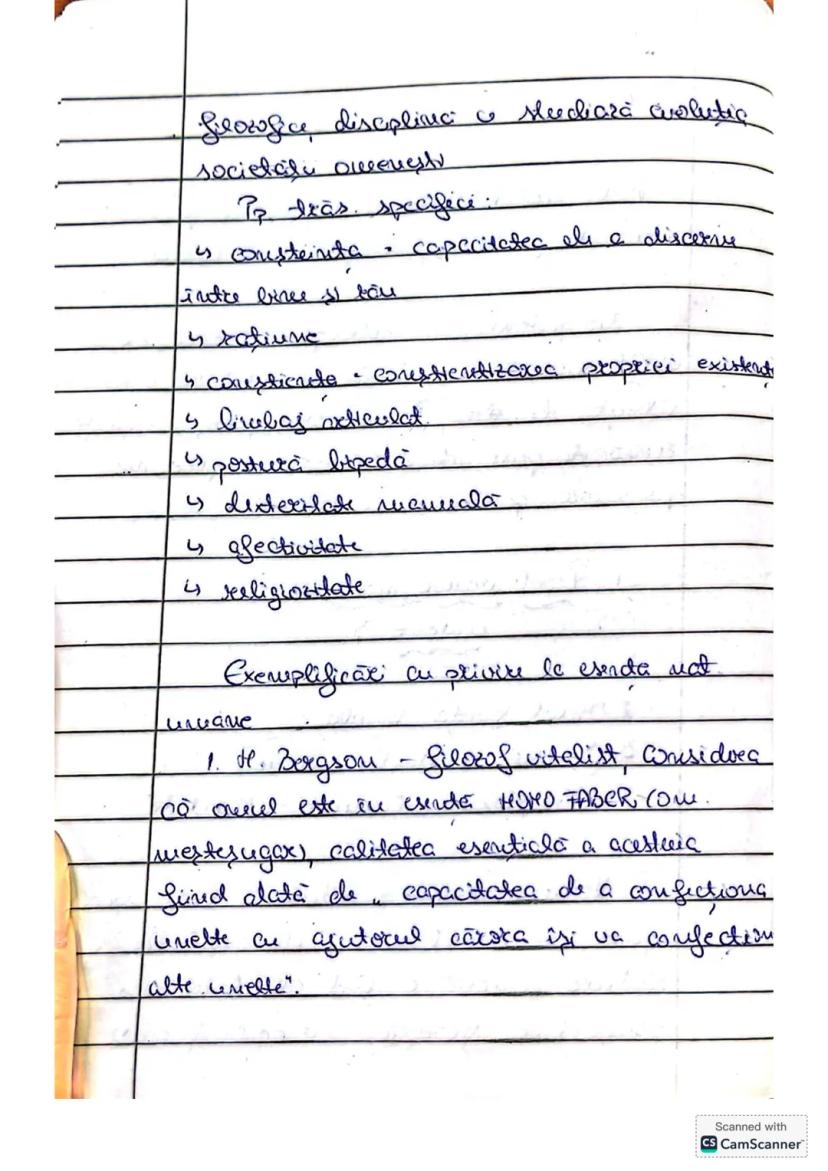 filozofice, disciplină c studiază evoluția
societății omenești
Pp trăs. specifici:
↳ conștiința - capacitatea de a discerne
între bine și rău
↳ rațiune
↳ conștiența - conștientizarea propriei existenț
↳ limbaj articulat
↳ postură bipedă
↳ dexteritate manuală
↳ afectivitate
↳ religiozitate
Exemplificări cu privire la esența nat.
umane
1. H. Bergson - filozof vitalist, considera
că omul este în esență HOMO FABER (om
meșteșugar), calitatea esențială a acestuia
fiind dată de „capacitatea de a confecționa
unelte cu ajutorul cărora își va confecțion
alte unelte".
Scanned with
CS CamScanner